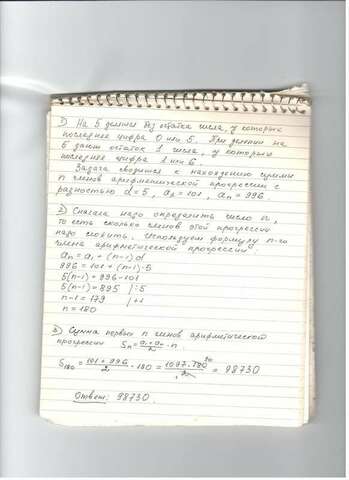 1) На 5 делятся без остатка числа, у которых
последнее цифра 0 или 5. При делении на
5 дают остаток 1 числа, у которых
последнее цифра 1 или 6.
Задача сводится к нахождению суммы
n членов арифметической прогрессии с
разностью d = 5, a₁ = 101, aₙ = 996.
2) Сначала надо определить число n,
то есть сколько членов этой прогрессии
надо сложить. Используем формулу n-го
члена арифметической прогрессии:
aₙ = a₁ + (n-1)d
996 = 101 + (n-1)·5
5(n-1) = 996-101
5(n-1) = 895 |:5
n-1 = 179 |+1
n = 180
3) Сумма первых n членов арифметической
прогрессии Sₙ = (a₁+aₙ)/2 · n
S₁₈₀ = (101+996)/2 · 180 = (1097·180⁹⁰)/2₁ = 98730
Ответ: 98730